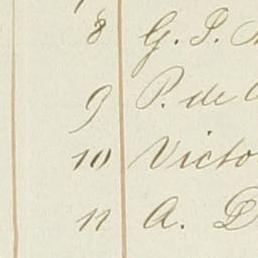 8 G. S.
9 P. de
10 Victo
11 A. D